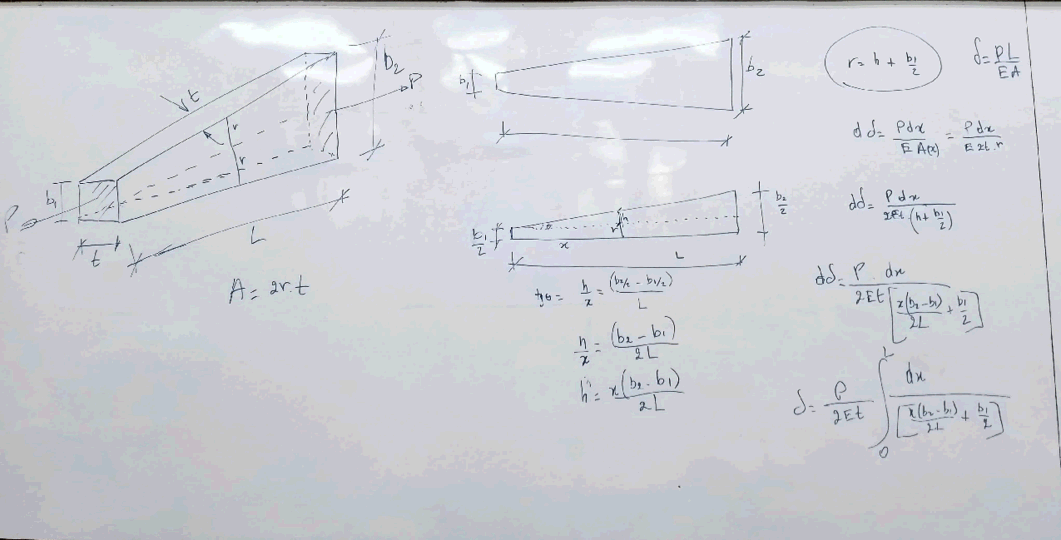 t
b₂
P
b₁
r
r
P
t
L
A = 2r.t
b₁
b₂
b₁/2
x
h
r
L
b₂/2
tgθ = h/x = (b₂/2 - b₁/2)/L
h/x = (b₂ - b₁)/2L
h = x(b₂ - b₁)/2L
r = h + b₁/2
δ = PL/EA
dδ = Pdx/EA(x) = Pdx/E2t.r
dδ = Pdx/2Et(h + b₁/2)
dδ = P.dx/2Et[x(b₂-b₁)/2L + b₁/2]
δ = P/2Et ∫₀ᴸ dx/[x(b₂-b₁)/2L + b₁/2]